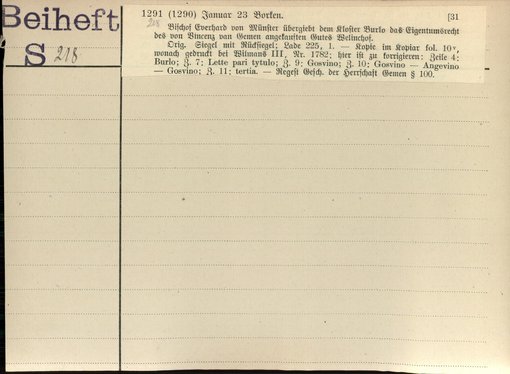 Beiheft
S 218
1291 (1290) Januar 23 Borken. [31
218
Bischof Everhard von Münster übergiebt dem Kloster Burlo das Eigentumsrecht
des von Vincenz van Gemen angekauften Gutes Welinchof.
Orig. Siegel mit Rücksiegel; Lade 225, 1. — Kopie im Kopiar fol. 10ᵛ,
wonach gedruckt bei Wilmans III, Nr. 1782; hier ist zu korrigieren: Zeile 4:
Burlo; Z. 7: Lette pari tytulo; Z. 9: Gosvino; Z. 10: Gosvino — Angevino
— Gosvino; Z. 11: tertia. — Regest Gesch. der Herrschaft Gemen § 100.